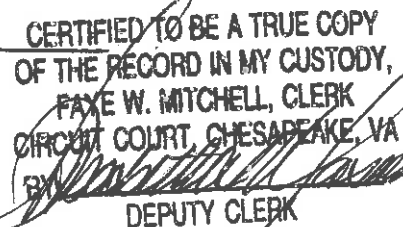 CERTIFIED TO BE A TRUE COPY
OF THE RECORD IN MY CUSTODY,
FAYE W. MITCHELL, CLERK
CIRCUIT COURT, CHESAPEAKE, VA
BY
DEPUTY CLERK